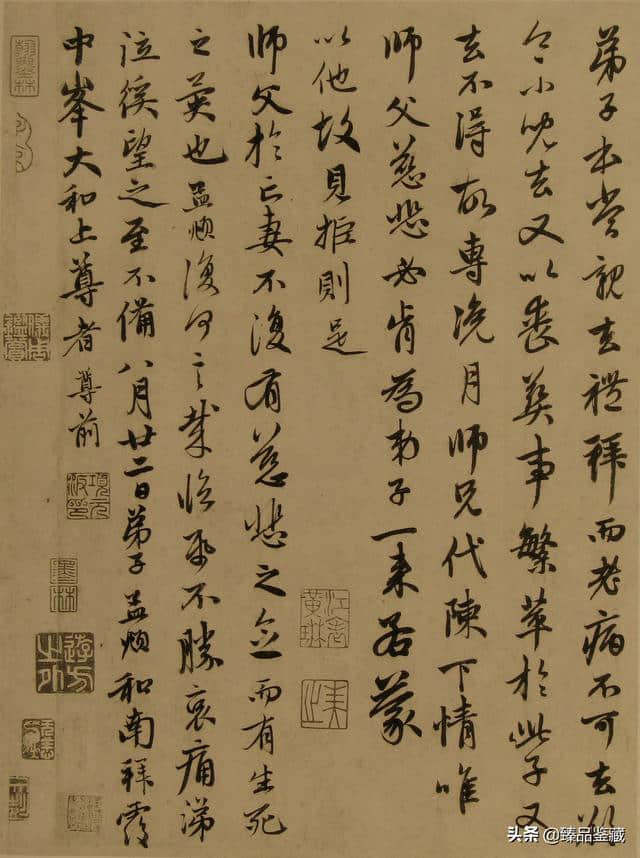 弟子本當親去禮拜而老病不可去
令小兒去又以喪葬事繁萃於此子又
去不得故專浼月師兄代陳下情唯
師父慈悲必肯為弟子一來若蒙
以他故見拒則是
師父於亡妻不復有慈悲之念而有生死
之異也孟頫復何言哉臨不勝哀痛涕
泣徯望之至不備八月廿二日弟子孟頫和南拜覆
中峯大和上尊者尊前
遊方之外
头条 @臻品鉴藏